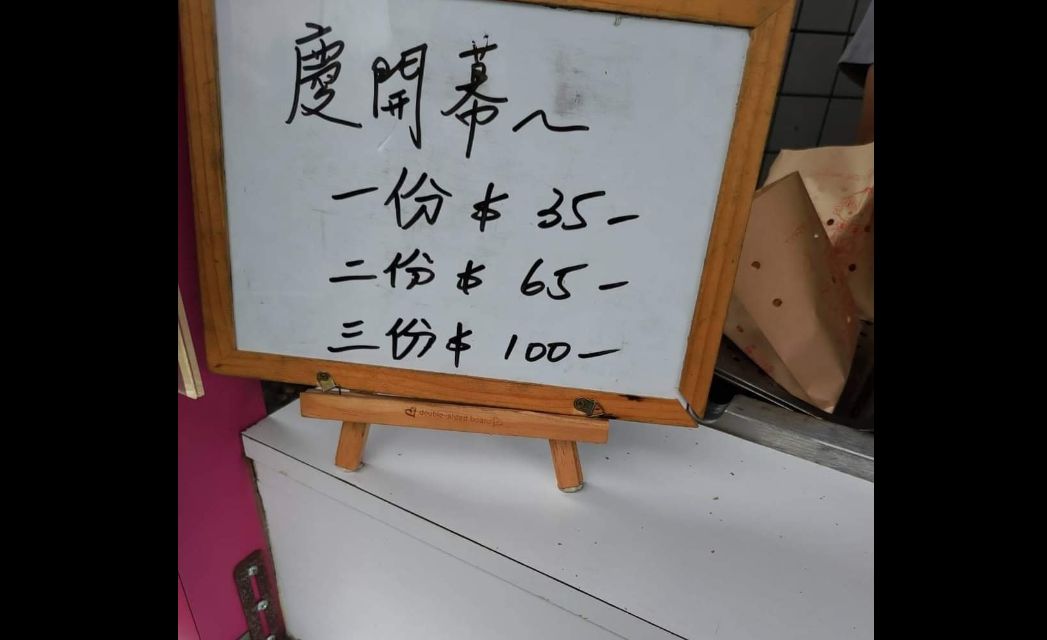 慶開幕~
一份$35-
二份$65-
三份$100-
double-sided board